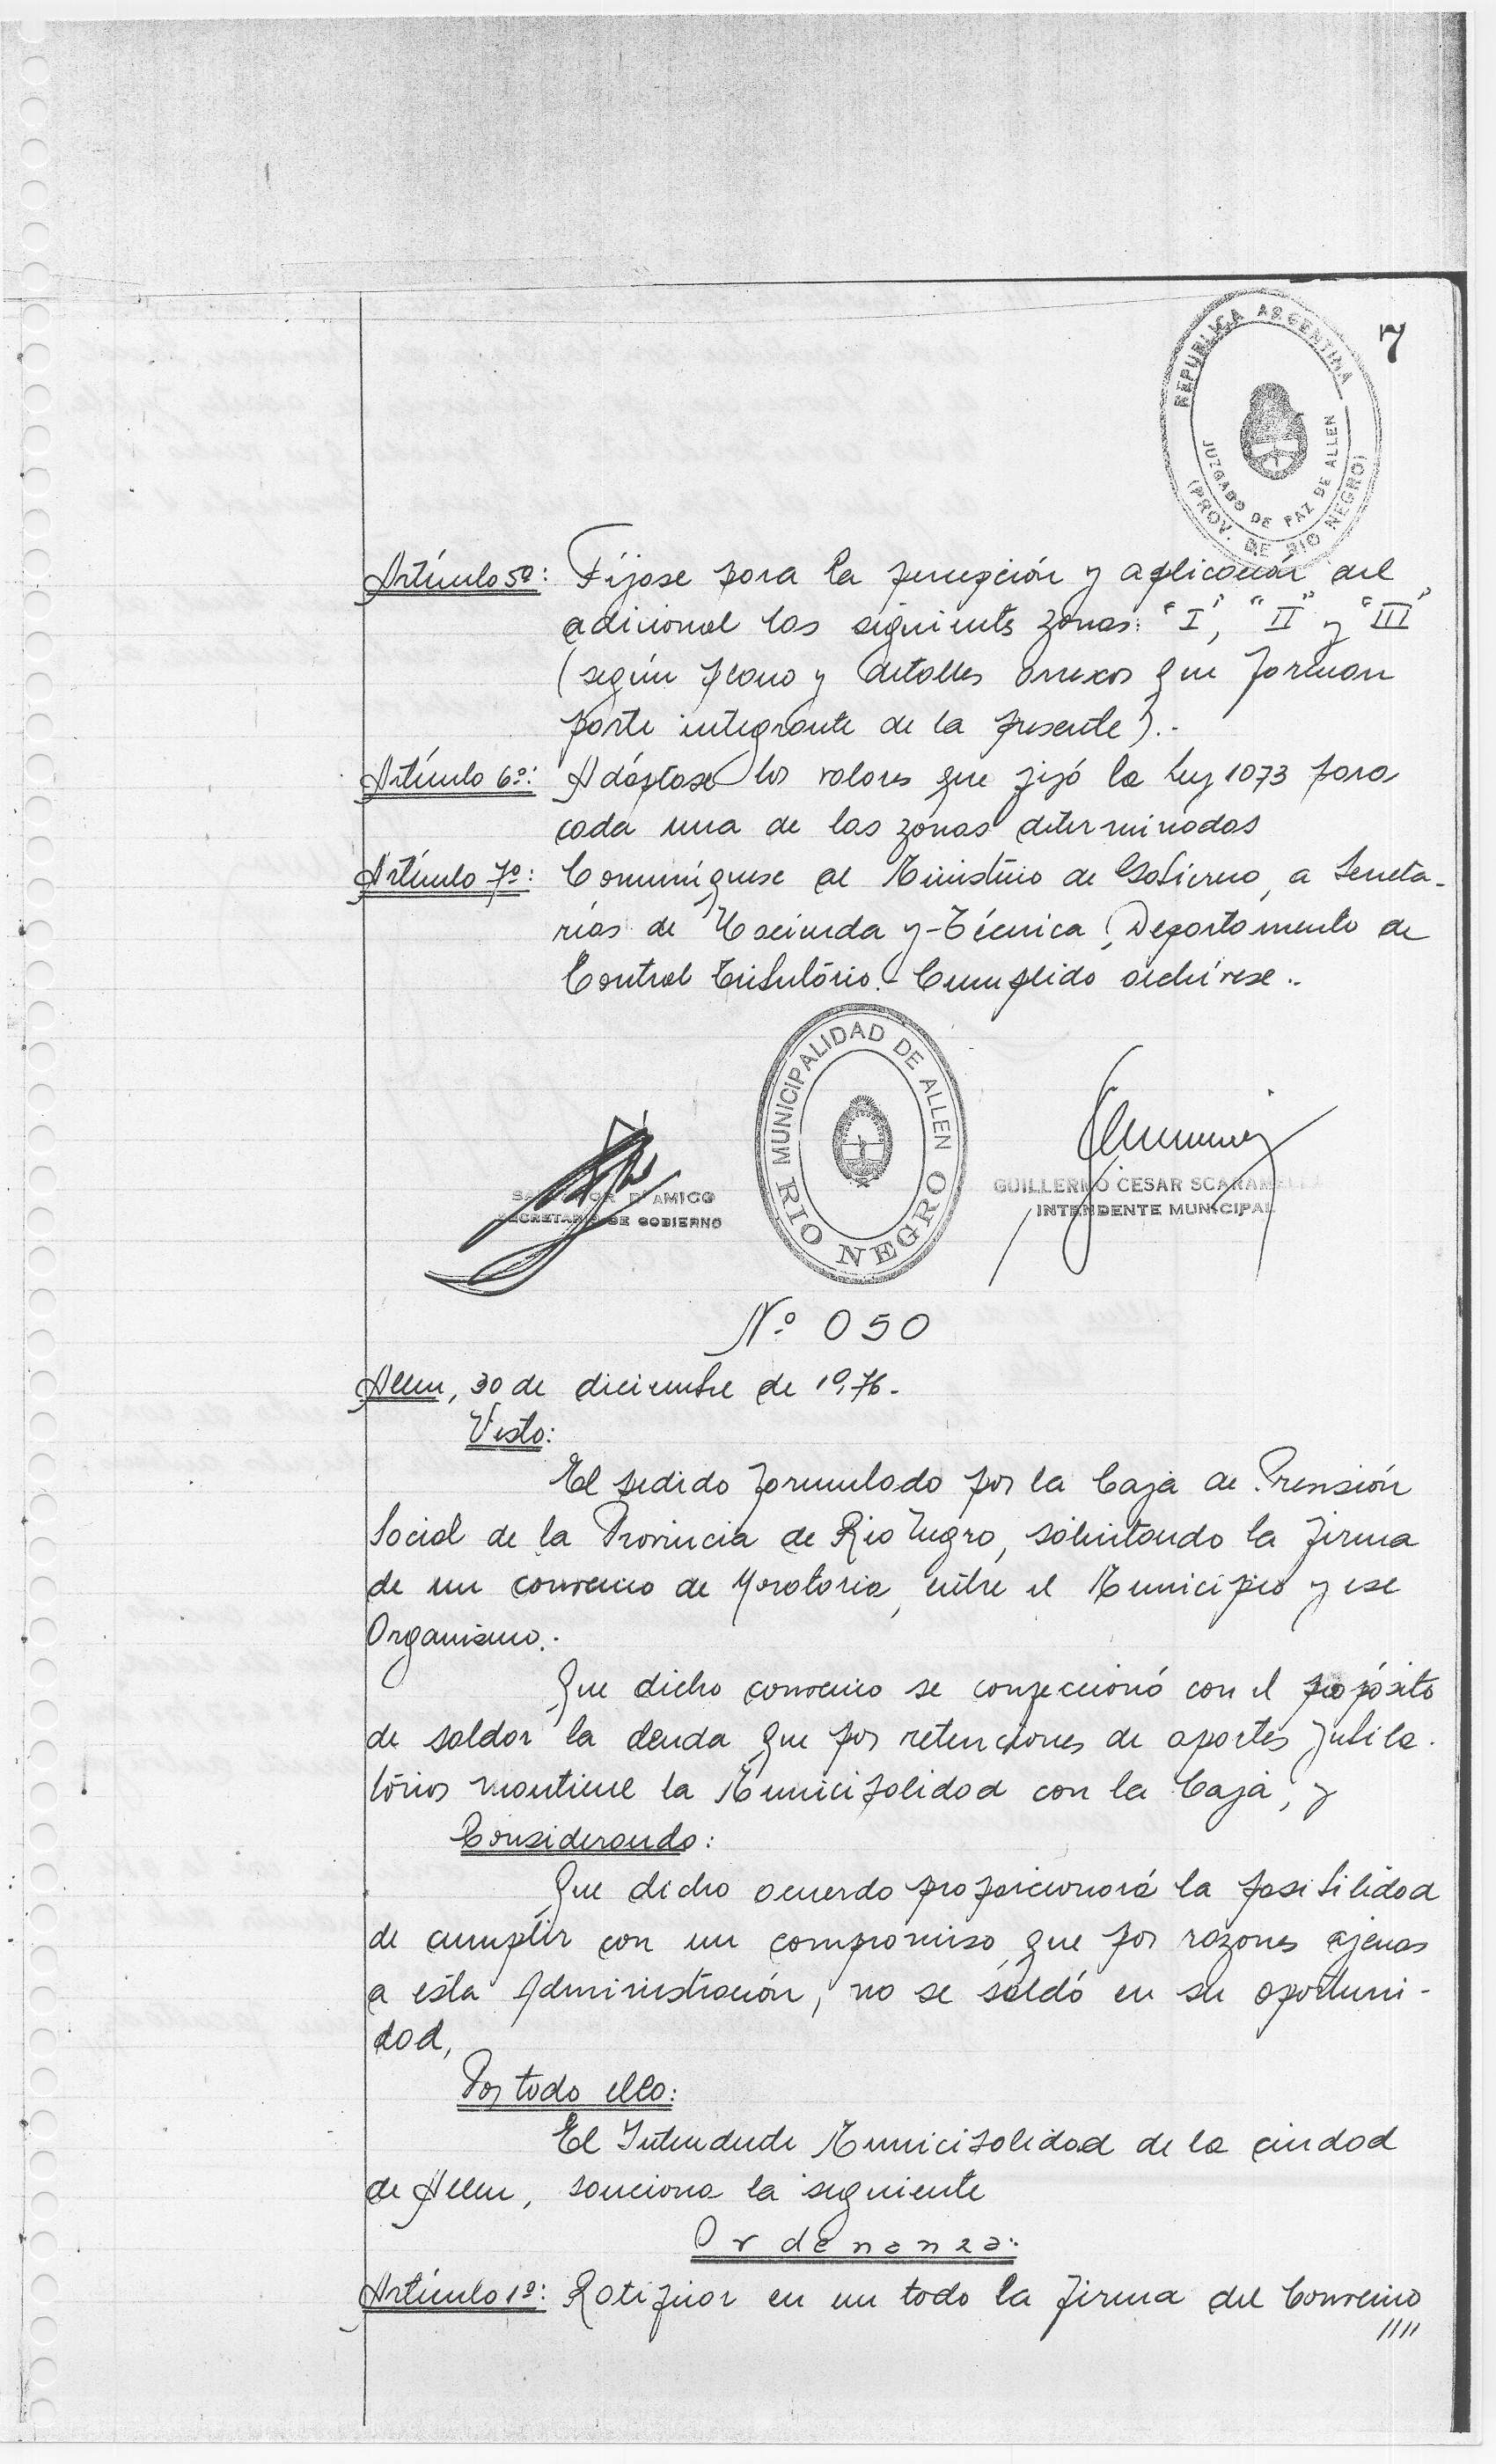 7
REPUBLICA ARGENTINA
JUZGADO DE PAZ DE ALLEN
(PROV. DE RIO NEGRO)
Artículo 5º: Fíjase para la percepción y aplicación del
adicional las siguientes zonas: "I", "II" y "III"
(según plano y detalles anexos que forman
parte integrante de la presente).-
Artículo 6º: Adóptase los valores que fijó la Ley 1073 para
cada una de las zonas determinadas
Artículo 7º: Comuníquese al Ministerio de Gobierno, a Secreta-
rías de Hacienda y Técnica, Departamento de
Control Tributario.- Cumplido archívese..
MUNICIPALIDAD DE ALLEN
RIO NEGRO
D'AMICO
SECRETARIO DE GOBIERNO
GUILLERMO CESAR SCARAMELLA
INTENDENTE MUNICIPAL
Nº 050
Allen, 30 de diciembre de 1976.-
Visto:
El pedido formulado por la Caja de Prensión
Social de la Provincia de Rio Negro, solicitando la firma
de un convenio de Moratoria, entre el Municipio y ese
Organismo.-
Que dicho convenio se confeccionó con el propósito
de saldar la deuda que por retenciones de aportes jubila-
torios mantiene la Municipalidad con la Caja, y
Considerando:
Que dicho acuerdo proporcionará la posibilidad
de cumplir con un compromiso que por razones ajenas
a esta Administración, no se saldó en su oportuni-
dad,
Por todo ello:
El Intendente Municipalidad de la ciudad
de Allen, sanciona la siguiente
Ordenanza:
Artículo 1º: Ratificar en un todo la firma del Convenio
////